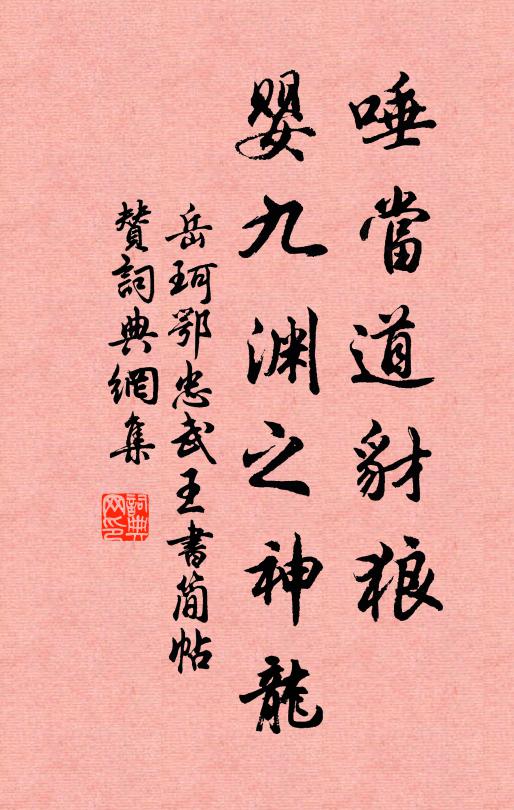 唾當道豺狼
嬰九渊之神龍
岳珂鄂忠武王書简帖
贊詞典網集
詞典
网印